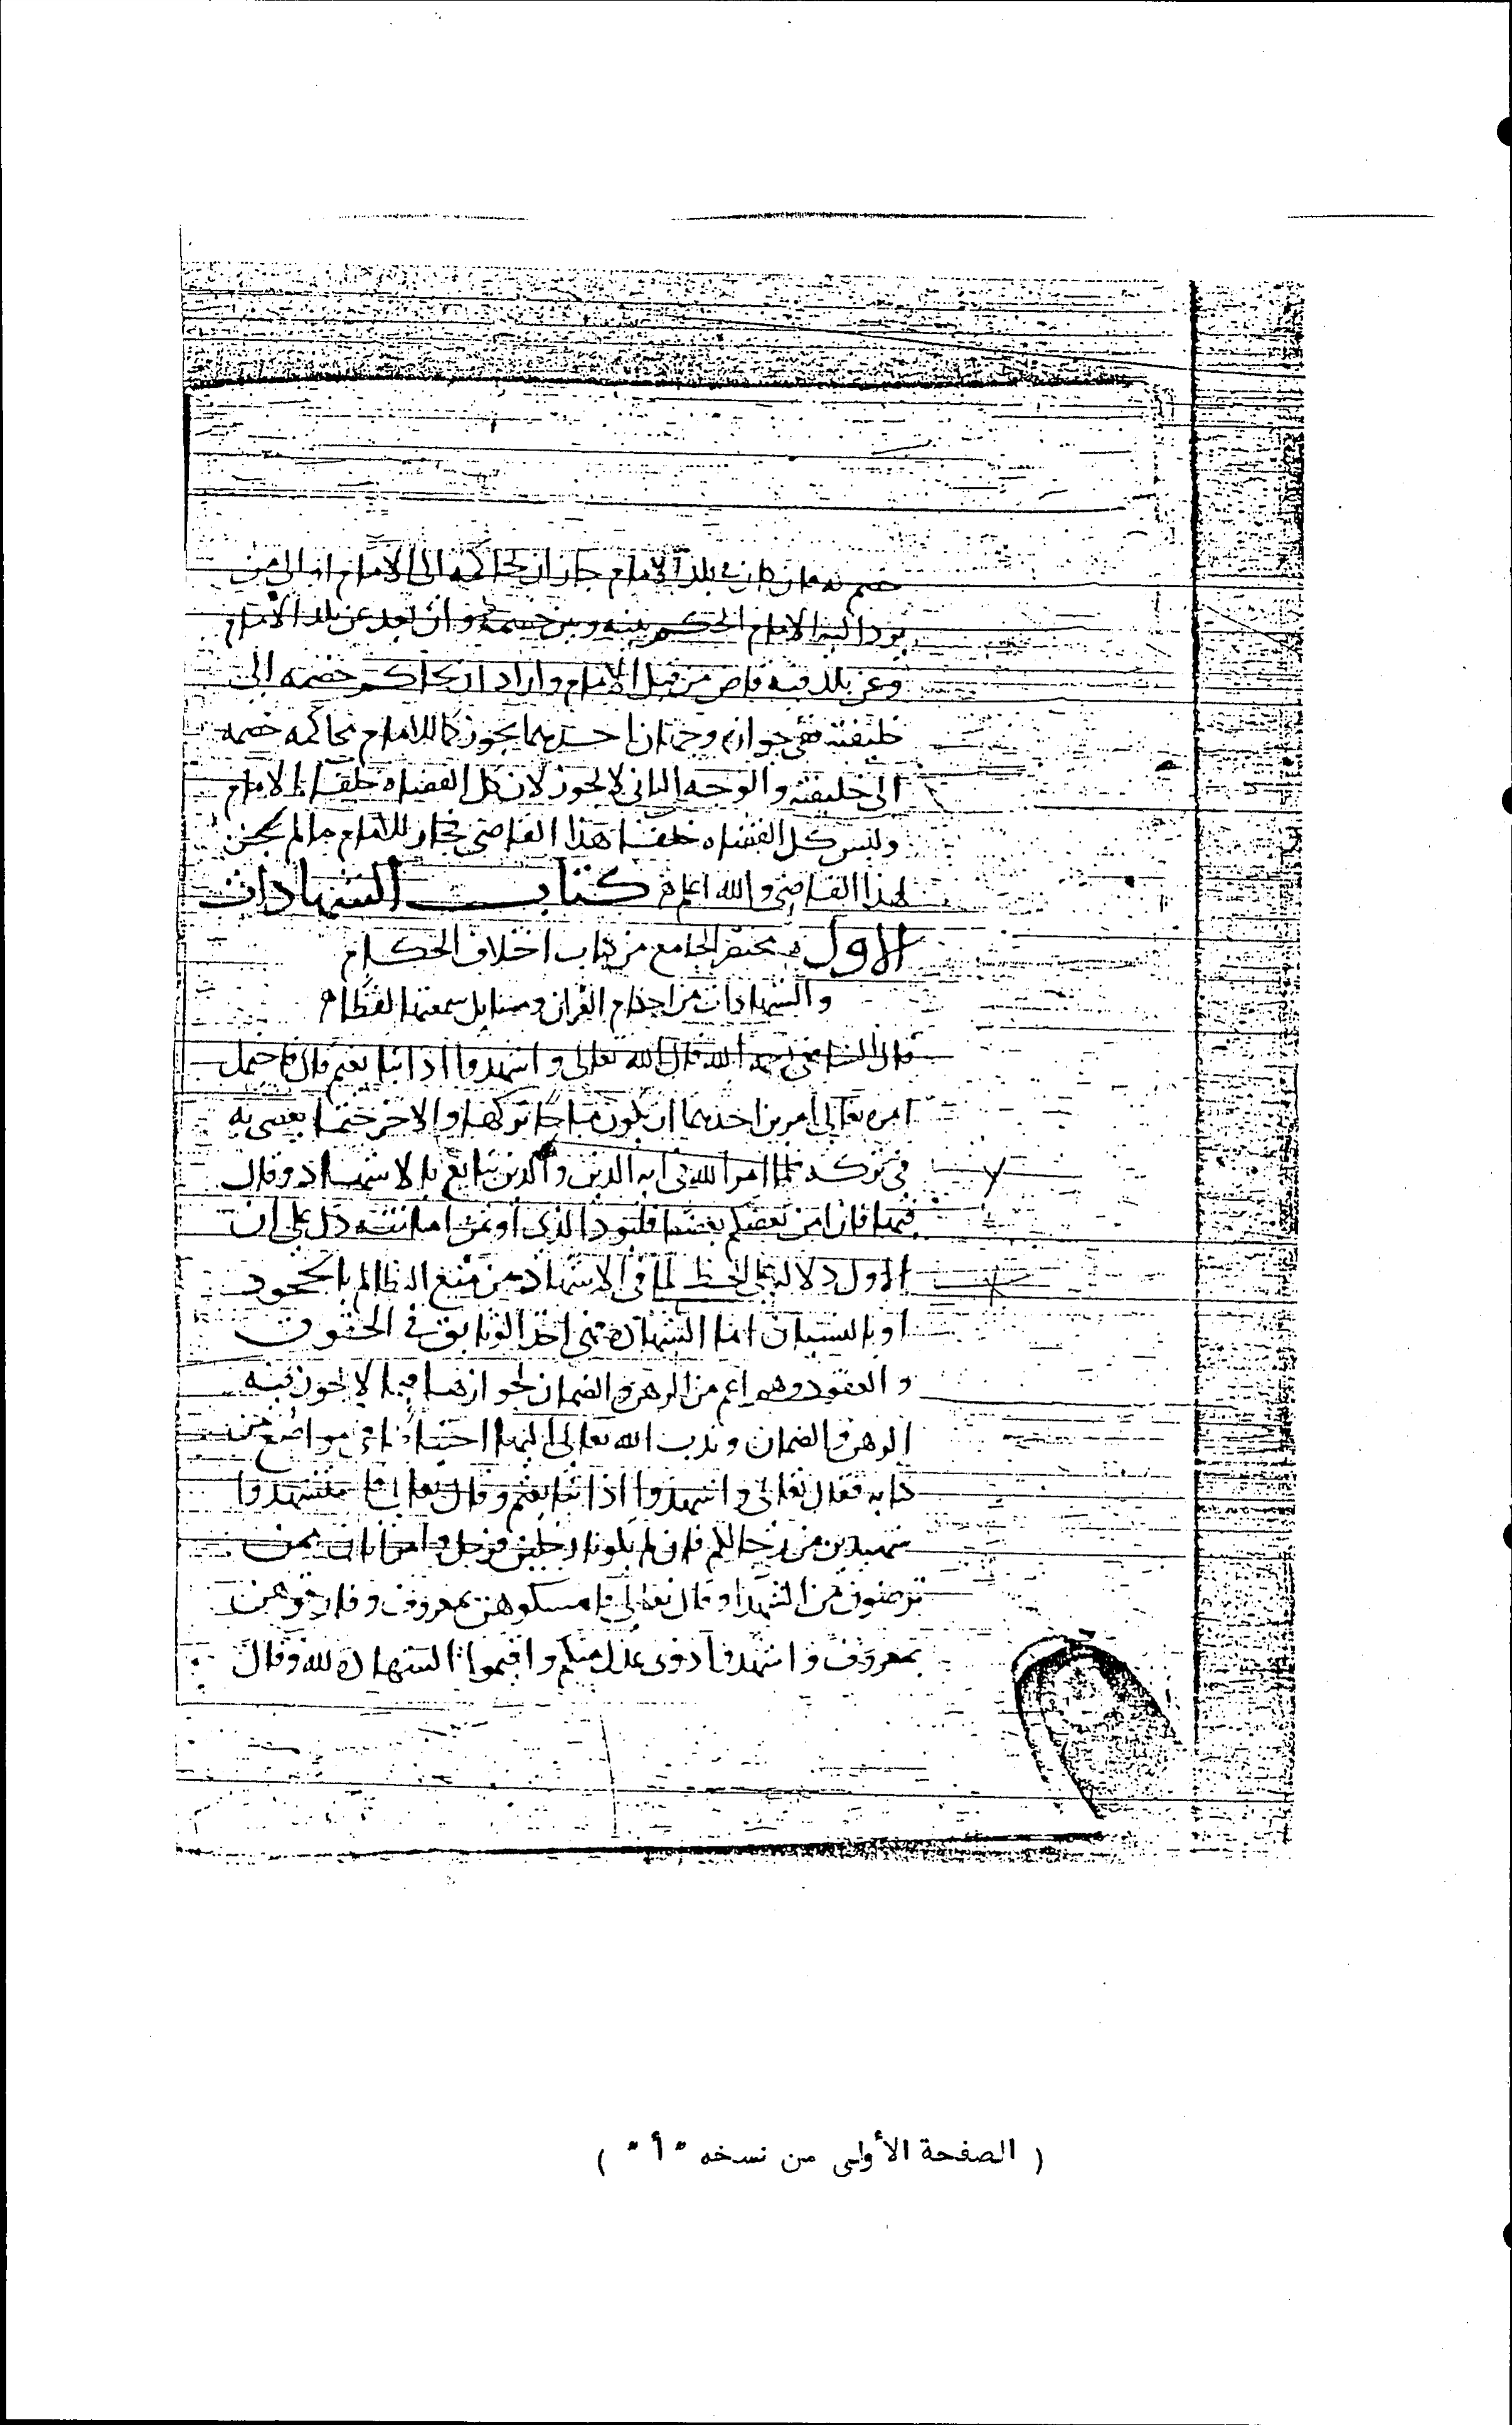 خصم نه فان كان في بلد الامام جاز ان يحاكمه الى الامام او الى من
يرد اليه الامام الحكم بينه وبين خصمه وان بعد عن بلد الامام
وعن بلد فيه قاض من قبل الامام واراد ان يحاكم خصمه الى
خليفته ففي جوازه وجهان احدهما يجوز كما للامام محاكمه خصمه
الى خليفته والوجه الثاني لا يجوز لان كل القضاه خلفا للامام
وليس كل القضاه خلفا هذا القاضي فجاز للامام ما لم يجز
لهذا القاضي والله اعلم كتاب الشهادات
الاول من مختصر الجامع من كتاب اختلاف الحكام
والشهادات من احكام القران ومسايل سمعتها لفظا
قال الشافعي رحمه الله قال الله تعالى واشهدوا اذا تبايعتم قال فاحتمل
امره تعالى امرين احدهما ان يكون مباحا تركه والاخر حتما يعصي به
في تركه فلما امر الله في ايه الدين والدين تبايع بالاشهاد وقال
فيها فان امن بعضكم بعضا فليود الذي اوتمن امانته دل على ان
الاول دلاله على الحظ لما في الاشهاد من منع الظالم بالجحود
او بالنسيان اما الشهادة فهي احد الوثايق في الحقوق
والعقود وهو اعم من الرهن والضمان لجوازها فيما لا يجوز فيه
الرهن والضمان وندب الله تعالى اليها احتياطا في مواضع من
كتابه فقال تعالى واشهدوا اذا تبايعتم وقال تعالى فاستشهدوا
شهيدين من رجالكم فان لم يكونا رجلين فرجل وامراتان ممن
ترضون من الشهدا وقال تعالى فامسكوهن بمعروف وفارقوهن
بمعروف واشهدوا ذوى عدل منكم واقيموا الشهادة لله وقال
( الصفحة الأولى من نسخه "أ" )